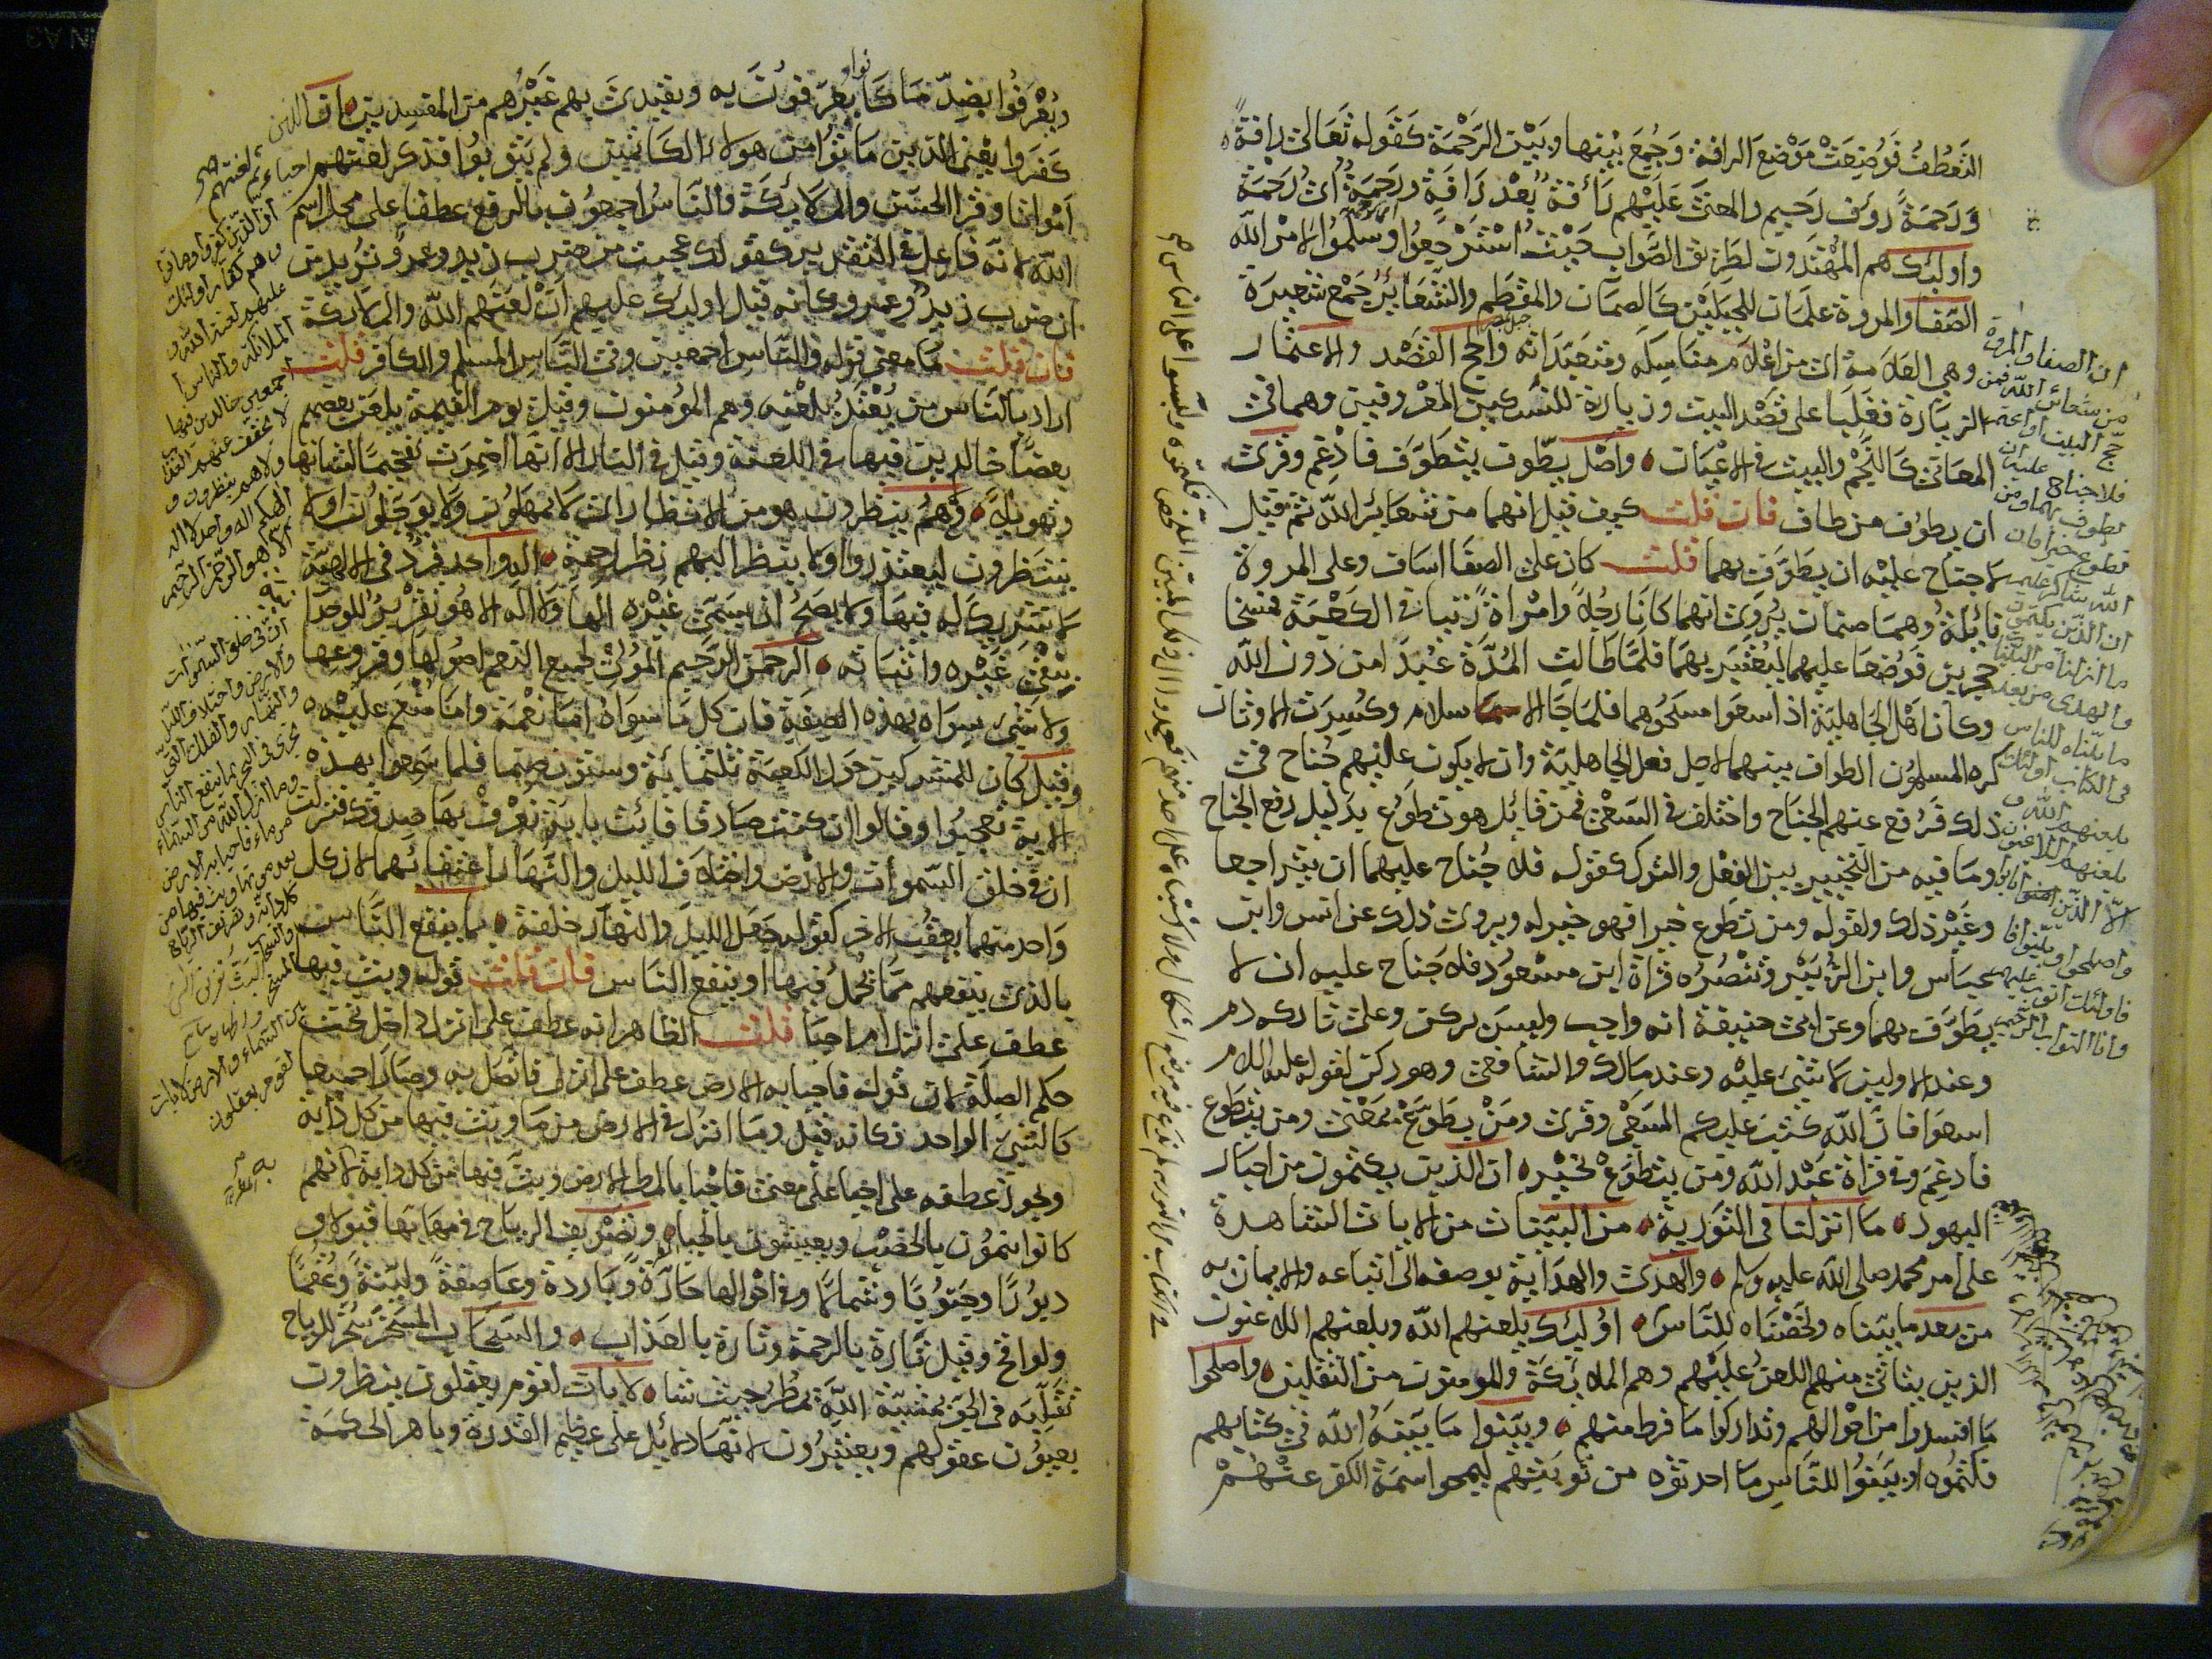 التعطف فوضعت موضع الرافة وجمع بينها وبين الرحمة كقوله تعالى رافة
ورحمة رءوف رحيم والمعنى عليهم رأفة بعد رافة ورحمة أي رحمة
وأولئك هم المهتدون لطريق الصواب حيث استرجعوا وسلموا لامر الله
الصفا والمروة علمان للجبلين كالصمان والمقطم والشعائر جمع شعيرة
وهي العلامة اي من اعلام مناسكه ومتعبداته والحج القصد والاعتمار
الزيارة فغلبا على قصد البيت وزيارة للنسكين المعروفين وهما في
المعاني كالنجم والبيت في الاعيان واصل يطوف يتطوف فادغم وقرئ
ان يطوف من طاف فان قلت كيف قيل انهما من شعائر الله ثم قيل
لا جناح عليه ان يطوف بهما قلت كان على الصفا اساف وعلى المروة
نائلة وهما صنمان يروى انهما كانا رجلا وامراة زنيا في الكعبة فمسخا
حجرين فوضعا عليهما ليعتبر بهما فلما طالت المدة عبدا من دون الله
وكان اهل الجاهلية اذا سعوا مسحوهما فلما جا الاسلام وكسرت الاوثان
كره المسلمون الطواف بينهما لاجل فعل الجاهلية وان لا يكون عليهم جناح في
ذلك فرفع عنهم الجناح واختلف في السعي فمن قائل هو تطوع بدليل رفع الجناح
وما فيه من التخيير بين الفعل والترك كقوله فلا جناح عليهما ان يتراجعا
وغير ذلك ولقوله ومن تطوع خيرا فهو خير له ويروى ذلك عن انس وابن
عباس وابن الزبير وتنصره قراة ابن مسعود فلا جناح عليه ان لا
يطوف بهما وعن ابي حنيفة انه واجب وليس بركن وعلى تاركه دم
وعند الاولين لا شئ عليه وعند مالك والشافعي وهو ركن لقوله عليه السلام
اسعوا فان الله كتب عليكم السعي وقرئ ومن يطوع بمعنى ومن يتطوع
فادغم وفي قراة عبد الله ومن يتطوع بخير ان الذين يكتمون من احبار
اليهود ما انزلنا في التورية من البينات من الايات الشاهدة
على امر محمد صلى الله عليه وسلم والهدى والهداية بوصفه الى اتباعه والايمان به
من بعد ما بيناه ولخصناه للناس أولئك يلعنهم الله ويلعنهم اللاعنون
الذين يتاتى منهم اللعن عليهم وهم الملائكة والمومنون من الثقلين واصلحوا
ما افسدوا من احوالهم وتداركوا ما فرط منهم وبينوا ما بينه الله في كتابهم
فكتموه او بينوا للناس ما احدثوه من توبتهم ليمحوا سمة الكفر عنهم
ان الصفا والمروة
من شعائر الله فمن
حج البيت او اعتمر
فلا جناح عليه ان
يطوف بهما ومن
تطوع خيرا فان
الله شاكر عليم
ان الذين يكتمون
ما انزلنا من البينات
والهدى من بعد
ما بيناه للناس
في الكتاب اولئك
يلعنهم الله و
يلعنهم اللاعنون
الا الذين تابوا
واصلحوا وبينوا
فاولئك اتوب عليهم
وانا التواب الرحيم
ويعرفوا بضد ما كانوا يعرفون به ويقتدي بهم غيرهم من المفسدين ان الذين
كفروا يعني الذين ماتوا من هولاء الكاتمين ولم يتوبوا فذكر لعنتهم احياء ثم لعنتهم
أمواتا وقرا الحسن والملائكة والناس اجمعون بالرفع عطفا على محل اسم
الله لانه فاعل في التقدير كقولك عجبت من ضرب زيد وعمرو تريد من
ان ضرب زيد وعمرو كانه قيل اولئك عليهم ان لعنهم الله والملائكة
فان قلت ما معنى قوله والناس اجمعين وفي الناس المسلم والكافر قلت
اراد بالناس من يعتد بلعنه وهم المؤمنون وقيل يوم القيمة يلعن بعضهم
بعضا خالدين فيها في اللعنة وقيل في النار الا انها اضمرت تفخيما لشانها
وتهويلا ولا هم ينظرون هو من الانظار اي لا يمهلون ولا يوجلون او لا
ينتظرون ليعتذروا او لا ينظر اليهم نظر رحمة اله واحد فرد في الالهية
لا شريك له فيها ولا يصح ان يسمى غيره الها ولا اله الا هو تقرير للوحدانية
بنفي غيره واثباته الرحمن الرحيم المولى لجميع النعم اصولها وفروعها
ولا شئ سواه بهذه الصفة فان كل ما سواه اما نعمة واما منعم عليه
وقيل كان للمشركين حول الكعبة ثلثمائة وستون صنما فلما سمعوا بهذه
الاية تعجبوا وقالوا ان كنت صادقا فائت باية نعرف بها صدقك فنزلت
ان في خلق السموات والارض واختلاف الليل والنهار واعتقابهما لان كل
واحد منهما يعقب الاخر كقوله جعل الليل والنهار خلفة بما ينفع الناس
بالذي ينفعهم مما يحمل فيها او ينفع الناس فان قلت قوله وبث فيها
عطف على انزل ام احيا قلت الظاهر انه عطف على انزل داخل تحت
حكم الصلة لان قوله فاحيا به الارض عطف على انزل فاتصل به وصارا جميعا
كالشئ الواحد فكانه قيل وما انزل في الارض من ما وبث فيها من كل دابة
ويجوز عطفه على احيا على معنى فاحيا بالمطر الارض وبث فيها من كل دابة لانهم
كانوا ينمون بالخصب ويعيشون بالحيا وتصريف الرياح في مهابها قبولا و
دبورا وجنوبا وشمالا وفي احوالها حارة وباردة وعاصفة ولينة وعقما
ولواقح وقيل تارة بالرحمة وتارة بالعذاب والسحاب المسخر سخر للرياح
تقلبه في الجو بمشية الله يمطر حيث شاء لايات لقوم يعقلون ينظرون
بعيون عقولهم ويعتبرون لانها دلائل على عظيم القدرة وباهر الحكمة
ان الذين كفروا وماتوا
وهم كفار اولئك
عليهم لعنة الله و
الملائكة والناس
اجمعين خالدين فيها
لا يخفف عنهم العذاب
ولا هم ينظرون و
الهكم اله واحد لا اله
الا هو الرحمن الرحيم
ان في خلق السموات
والارض واختلاف الليل
والنهار والفلك التي
تجري في البحر بما ينفع الناس
وما انزل الله من السماء
من ماء فاحيا به الارض
بعد موتها وبث فيها من
كل دابة وتصريف الرياح
والسحاب المسخر
بين السماء والارض لايات
لقوم يعقلون